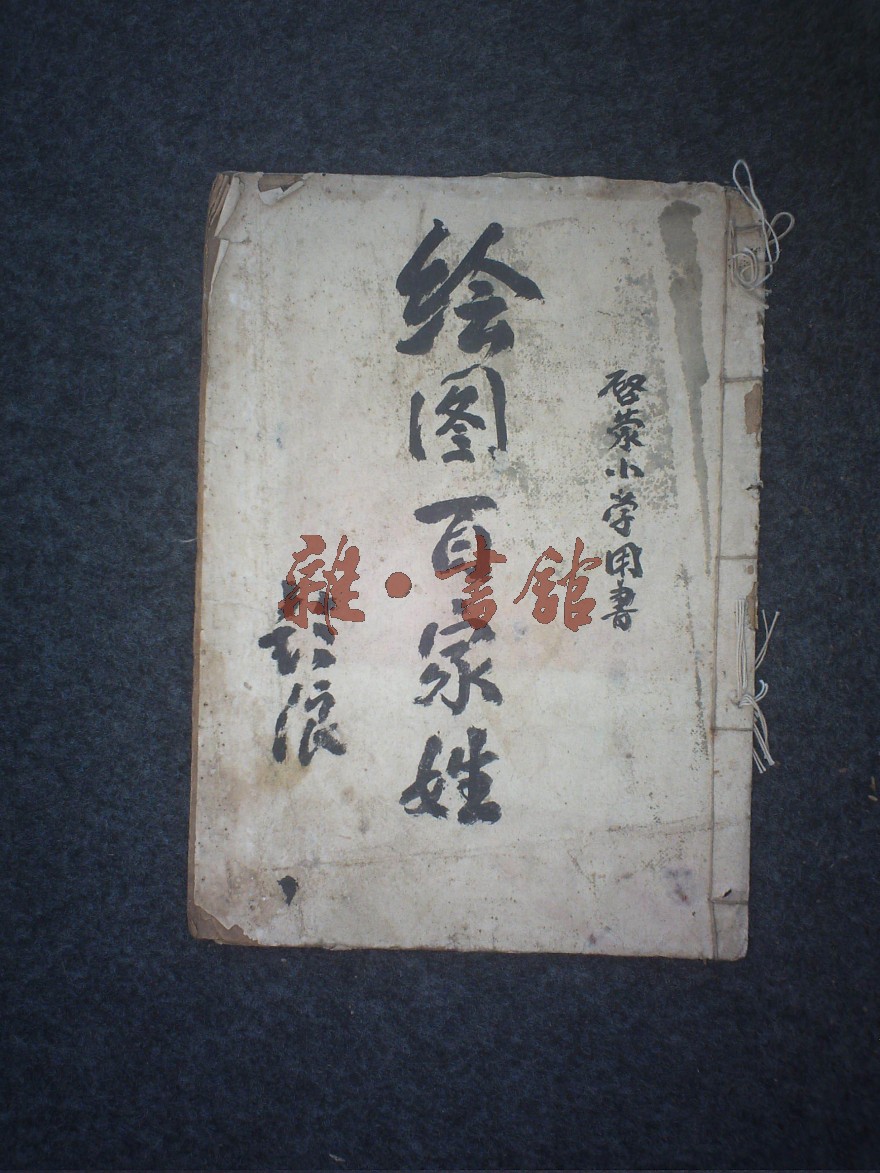 启蒙小学用書
绘图百家姓
雜·書館